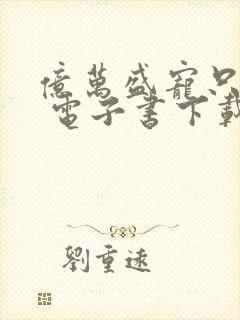 億萬盛寵只
電子書下載
劉重遠